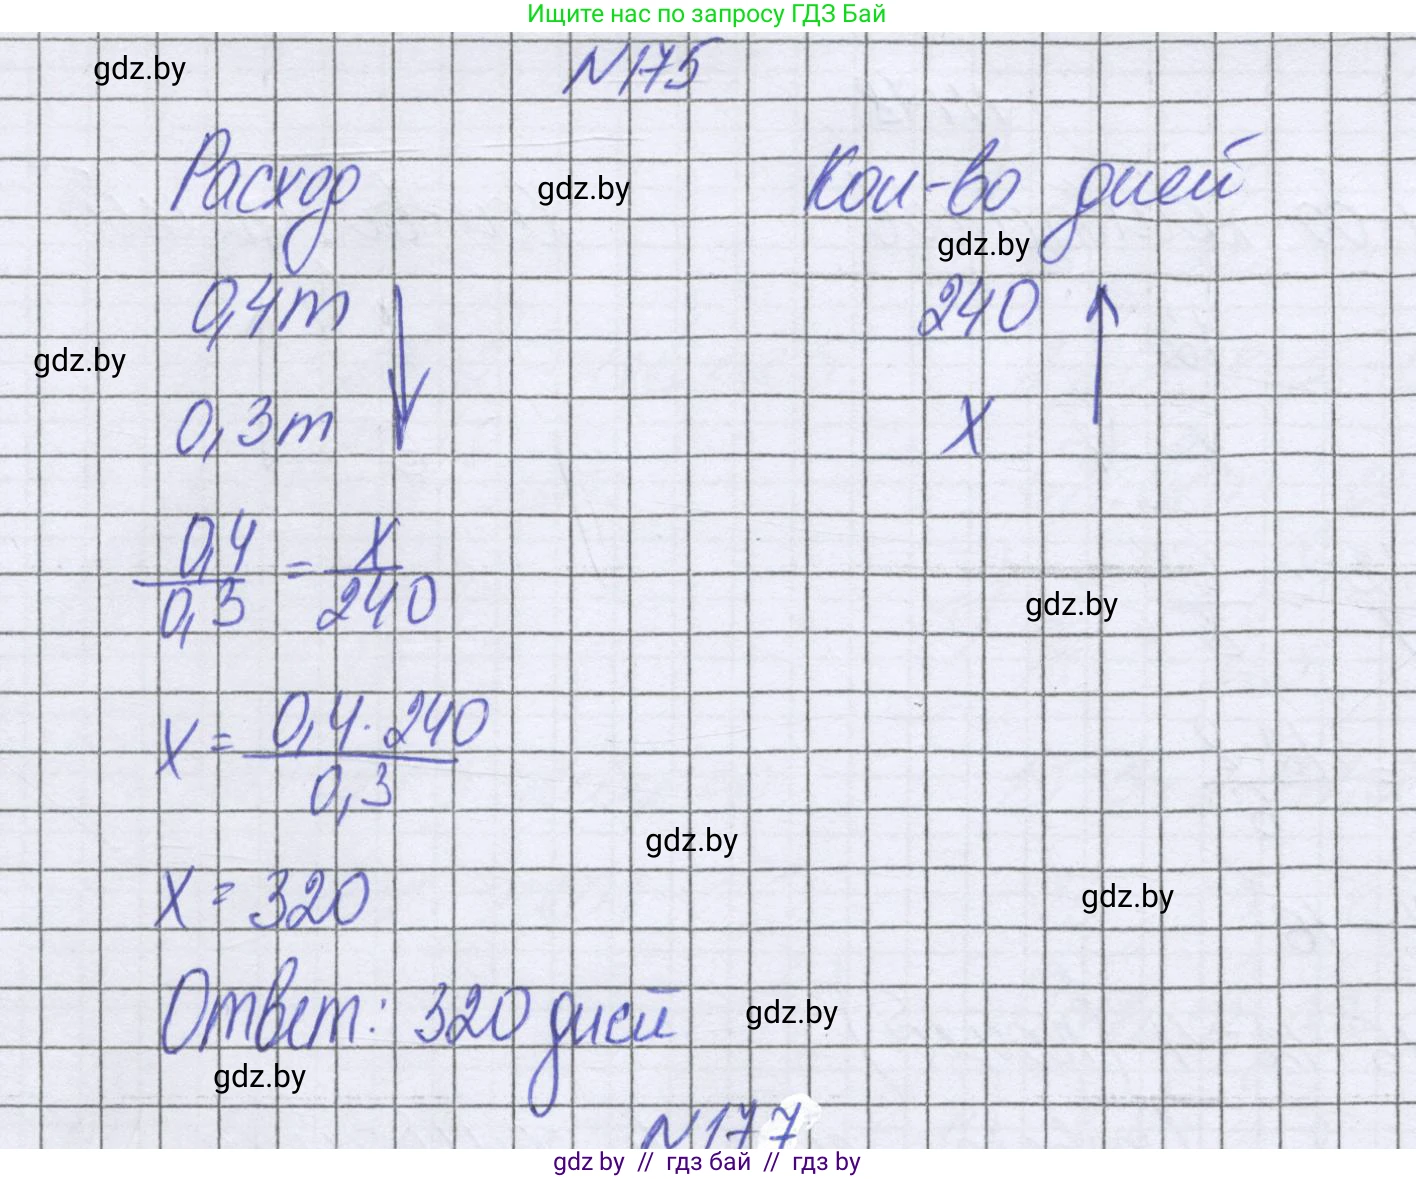 Ищите нас по запросу ГДЗ Бай
gdz.by
N175
Расход
gdz.by
Кол-во дней
gdz.by
0,4т
240
gdz.by
0,3т
x
0,4 / 0,3 = x / 240
gdz.by
x = 0,4 · 240 / 0,3
gdz.by
x = 320
gdz.by
Ответ: 320 дней
gdz.by
gdz.by
N177
gdz by // гдз бай // гдз by